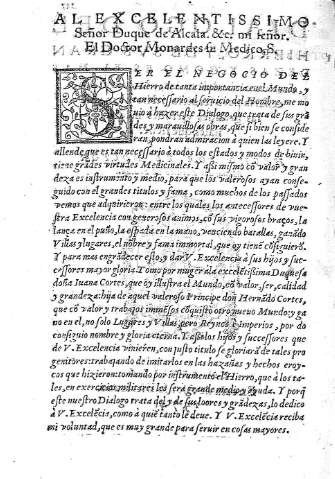 AL EXCELENTISSIMO
Señor Duque de Alcala. &c. mi señor.
El Doctor Monardes su Medico. S.
SER EL NEGOCIO DEL
Hierro de tanta importancia en el Mundo, y
tan necessario al seruicio del Hombre, me mo
uio à hazer este Dialogo, que trata de sus grã
dezas y marauillosas obras, que si bien se conside
ran, pondran admiracion à quien las leyere. Y
allende que es tan necessario à todos los estados y modos de biuir,
tiene grãdes virtudes Medicinales. Y assi mismo cõ valor y gran
deza es instrumento y medio, para que los valerosos ayan conse-
guido con el grandes titulos y fama, como muchos de los passados
vemos que adquirieron: entre los quales los antecessores de vue-
stra Excelencia con generosos animos, cõ sus vigorosos braços, la
lança en el puño, la espada en la mano, venciendo batallas, ganãdo
Villas y lugares, el nõbre y fama immortal, que oy tienẽ cõsiguierõ.
Y para mas engrãdecer esto, y dar V. Excelencia à sus hijos y suc-
cessores mayor gloria. Tomo por muger à la excelẽtissima Duquesa
doña Iuana Cortes, que oy illustra el Mundo, cõ valor, ser, calidad
y grandeza: hija de aquel valeroso Principe don Hernãdo Cortes,
que cõ valor y trabajos immẽsos cõquistò otro nueuo Mundo: y ga
no en el, no solo Lugares y Villas pero Reynos è Imperios, por do
consiguio nombre y gloria eterna. Y assi los hijos y successores que
de V. Excelencia vinieren, con justo titulo se gloriarã de tales pro
genitores: trabajando de imitarlos en las hazañas y hechos eroy-
cos que hizieron: tomando por instrumẽto el Hierro, que à los ta-
les, en exercicios militares les serà grande medio y ayuda. Y porq̃
este nuestro Dialogo trata del y de sus loores y grãdezas, lo dedico
à V. Excelẽcia, como à quie tanto le deue. Y V. Excelẽcia reciba
mi voluntad, que es muy grande para seruir en cosas mayores.